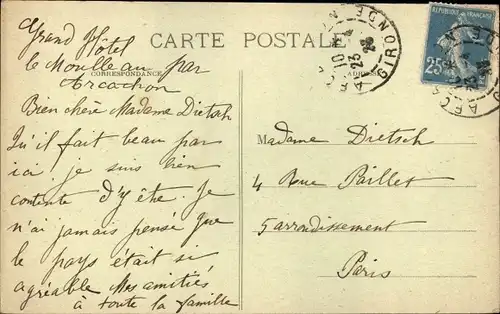 Grand Hôtel
le Moulleau par
Arcachon
CARTE POSTALE
CORRESPONDANCE
Bien chère Madame Dietsch
Qu'il fait beau par
ici je suis bien
contente d'y être. Je
n'ai jamais pensé que
le pays était si
agréable Mes amitiés
à toute la famille
RÉPUBLIQUE FRANÇAISE
25
GIRONDE
23
Madame Dietsch
4 Rue Paillet
5 arrondissement
Paris